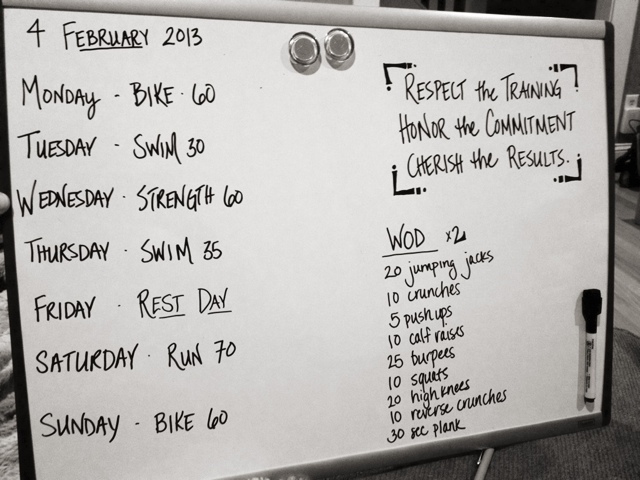 4 FEBRUARY 2013
MONDAY - BIKE - 60
TUESDAY - SWIM 30
WEDNESDAY - STRENGTH 60
THURSDAY - SWIM 35
FRIDAY - REST DAY
SATURDAY - RUN 70
SUNDAY - BIKE 60
RESPECT the TRAINING
HONOR the COMMITMENT
CHERISH the RESULTS.
WOD x2
20 jumping jacks
10 crunches
5 push ups
10 calf raises
25 burpees
10 squats
20 high knees
10 reverse crunches
30 sec plank